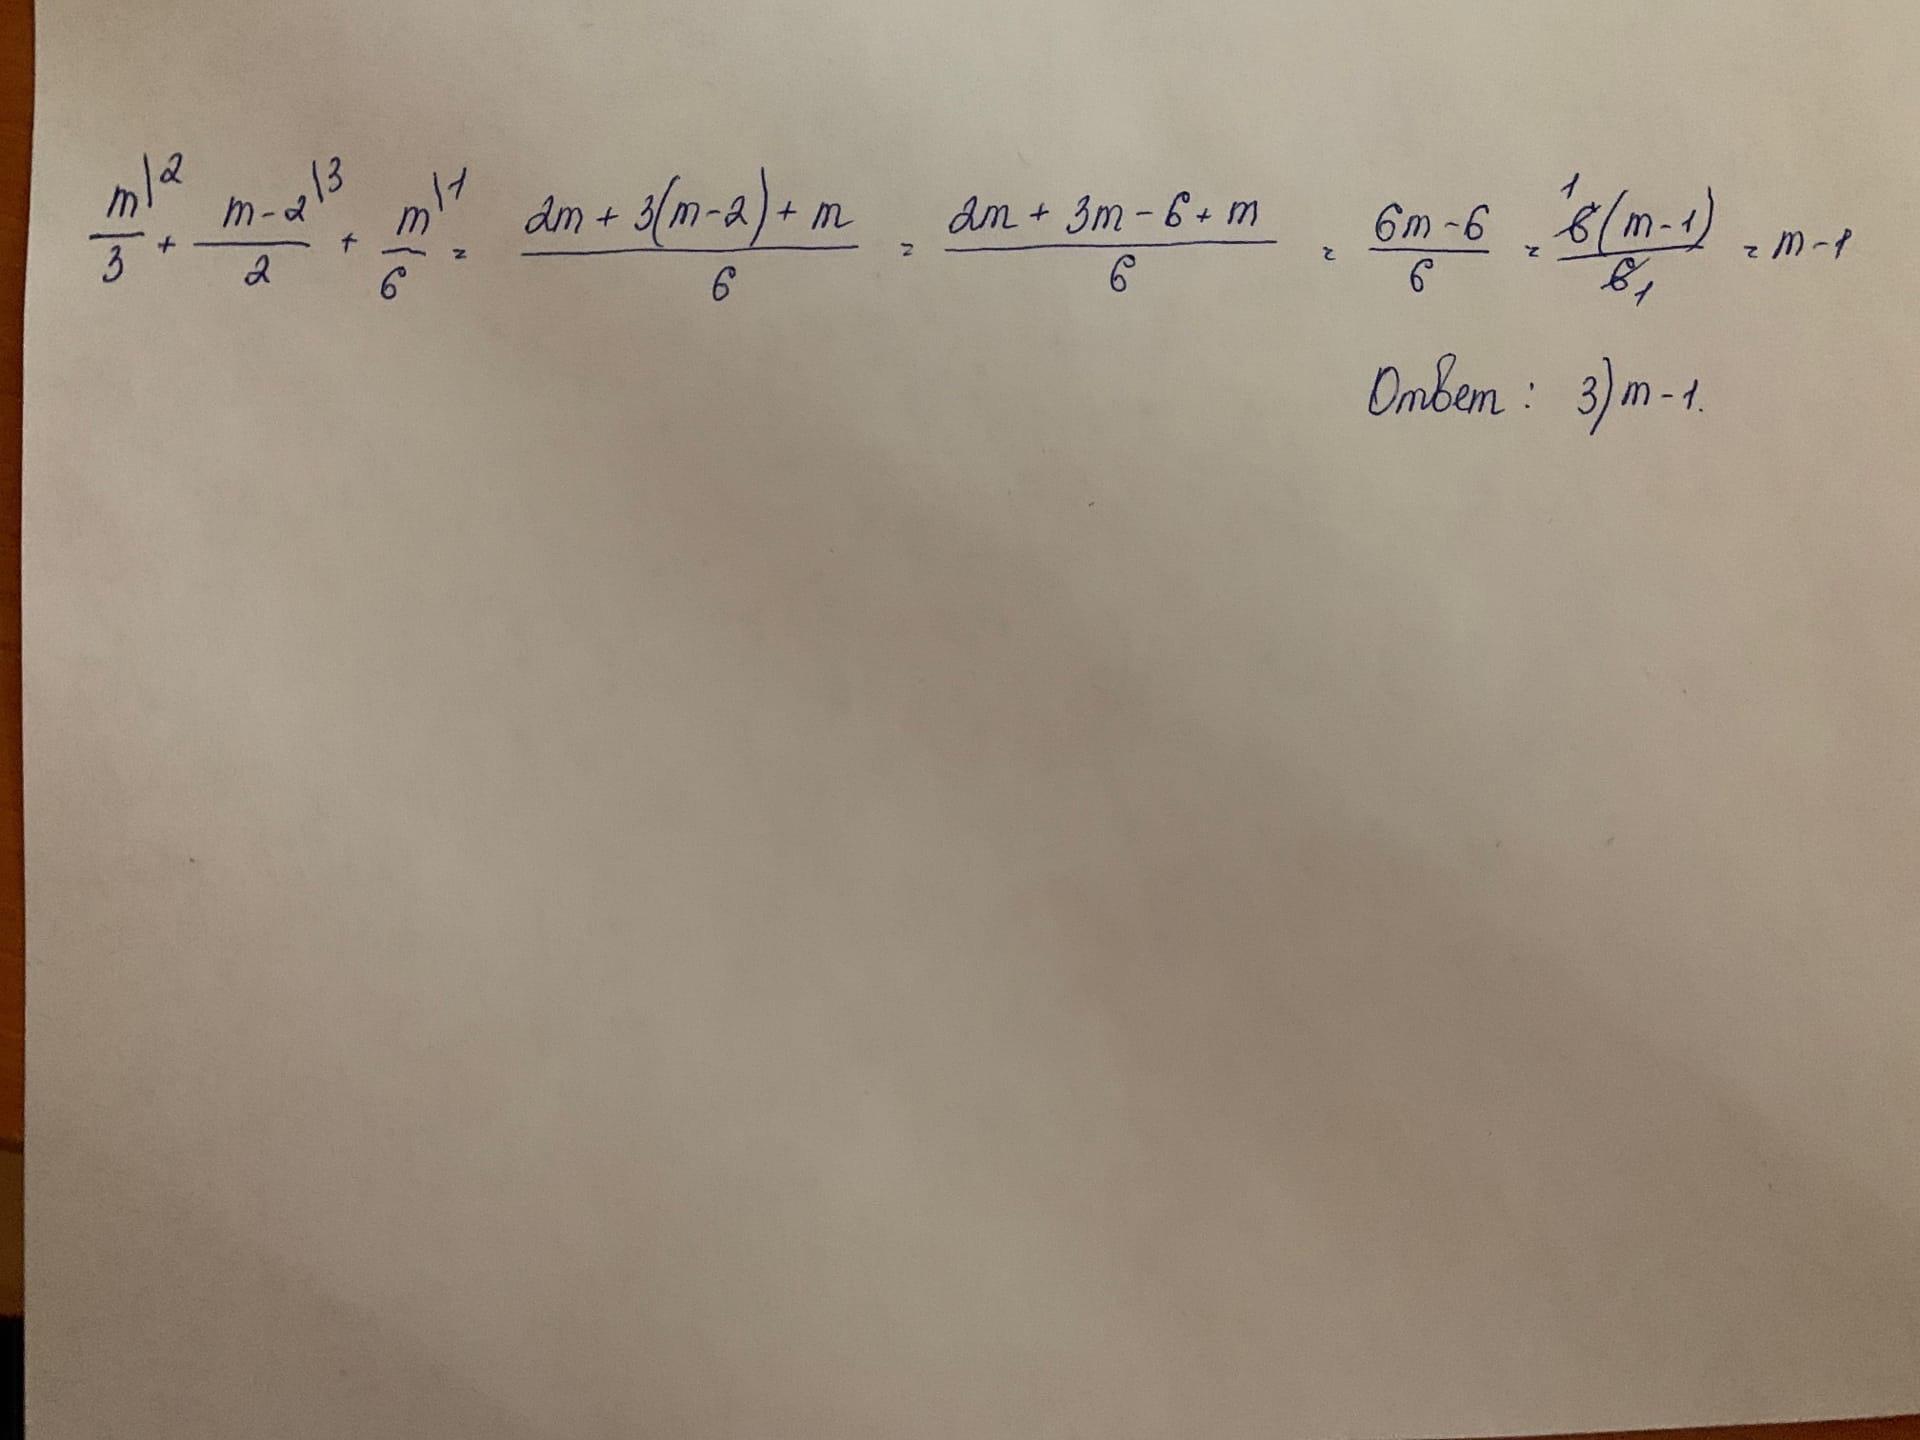 m\2/3 + m-2\3/2 + m\1/6 = 2m + 3(m-2) + m/6 = 2m + 3m - 6 + m/6 = 6m - 6/6 = 1 6(m-1)/6 1 = m-1
Ответ: 3) m-1.